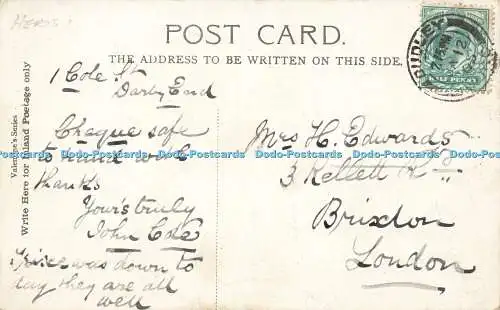 HERDS
POST CARD.
THE ADDRESS TO BE WRITTEN ON THIS SIDE.
Valentine's Series
Write Here for Inland Postage only
1 Cole St
Darby End
Cheque safe
to hand with
thanks
Yours truly
John Cole
was down to
day they are all
well
Mrs H. Edwards
3 Kellett
Brixton
London
DUDLEY
HALFPENNY
Dodo-Postcards Dodo-Postcards Dodo-Postcards Dodo-Postcards Dodo-Postcards